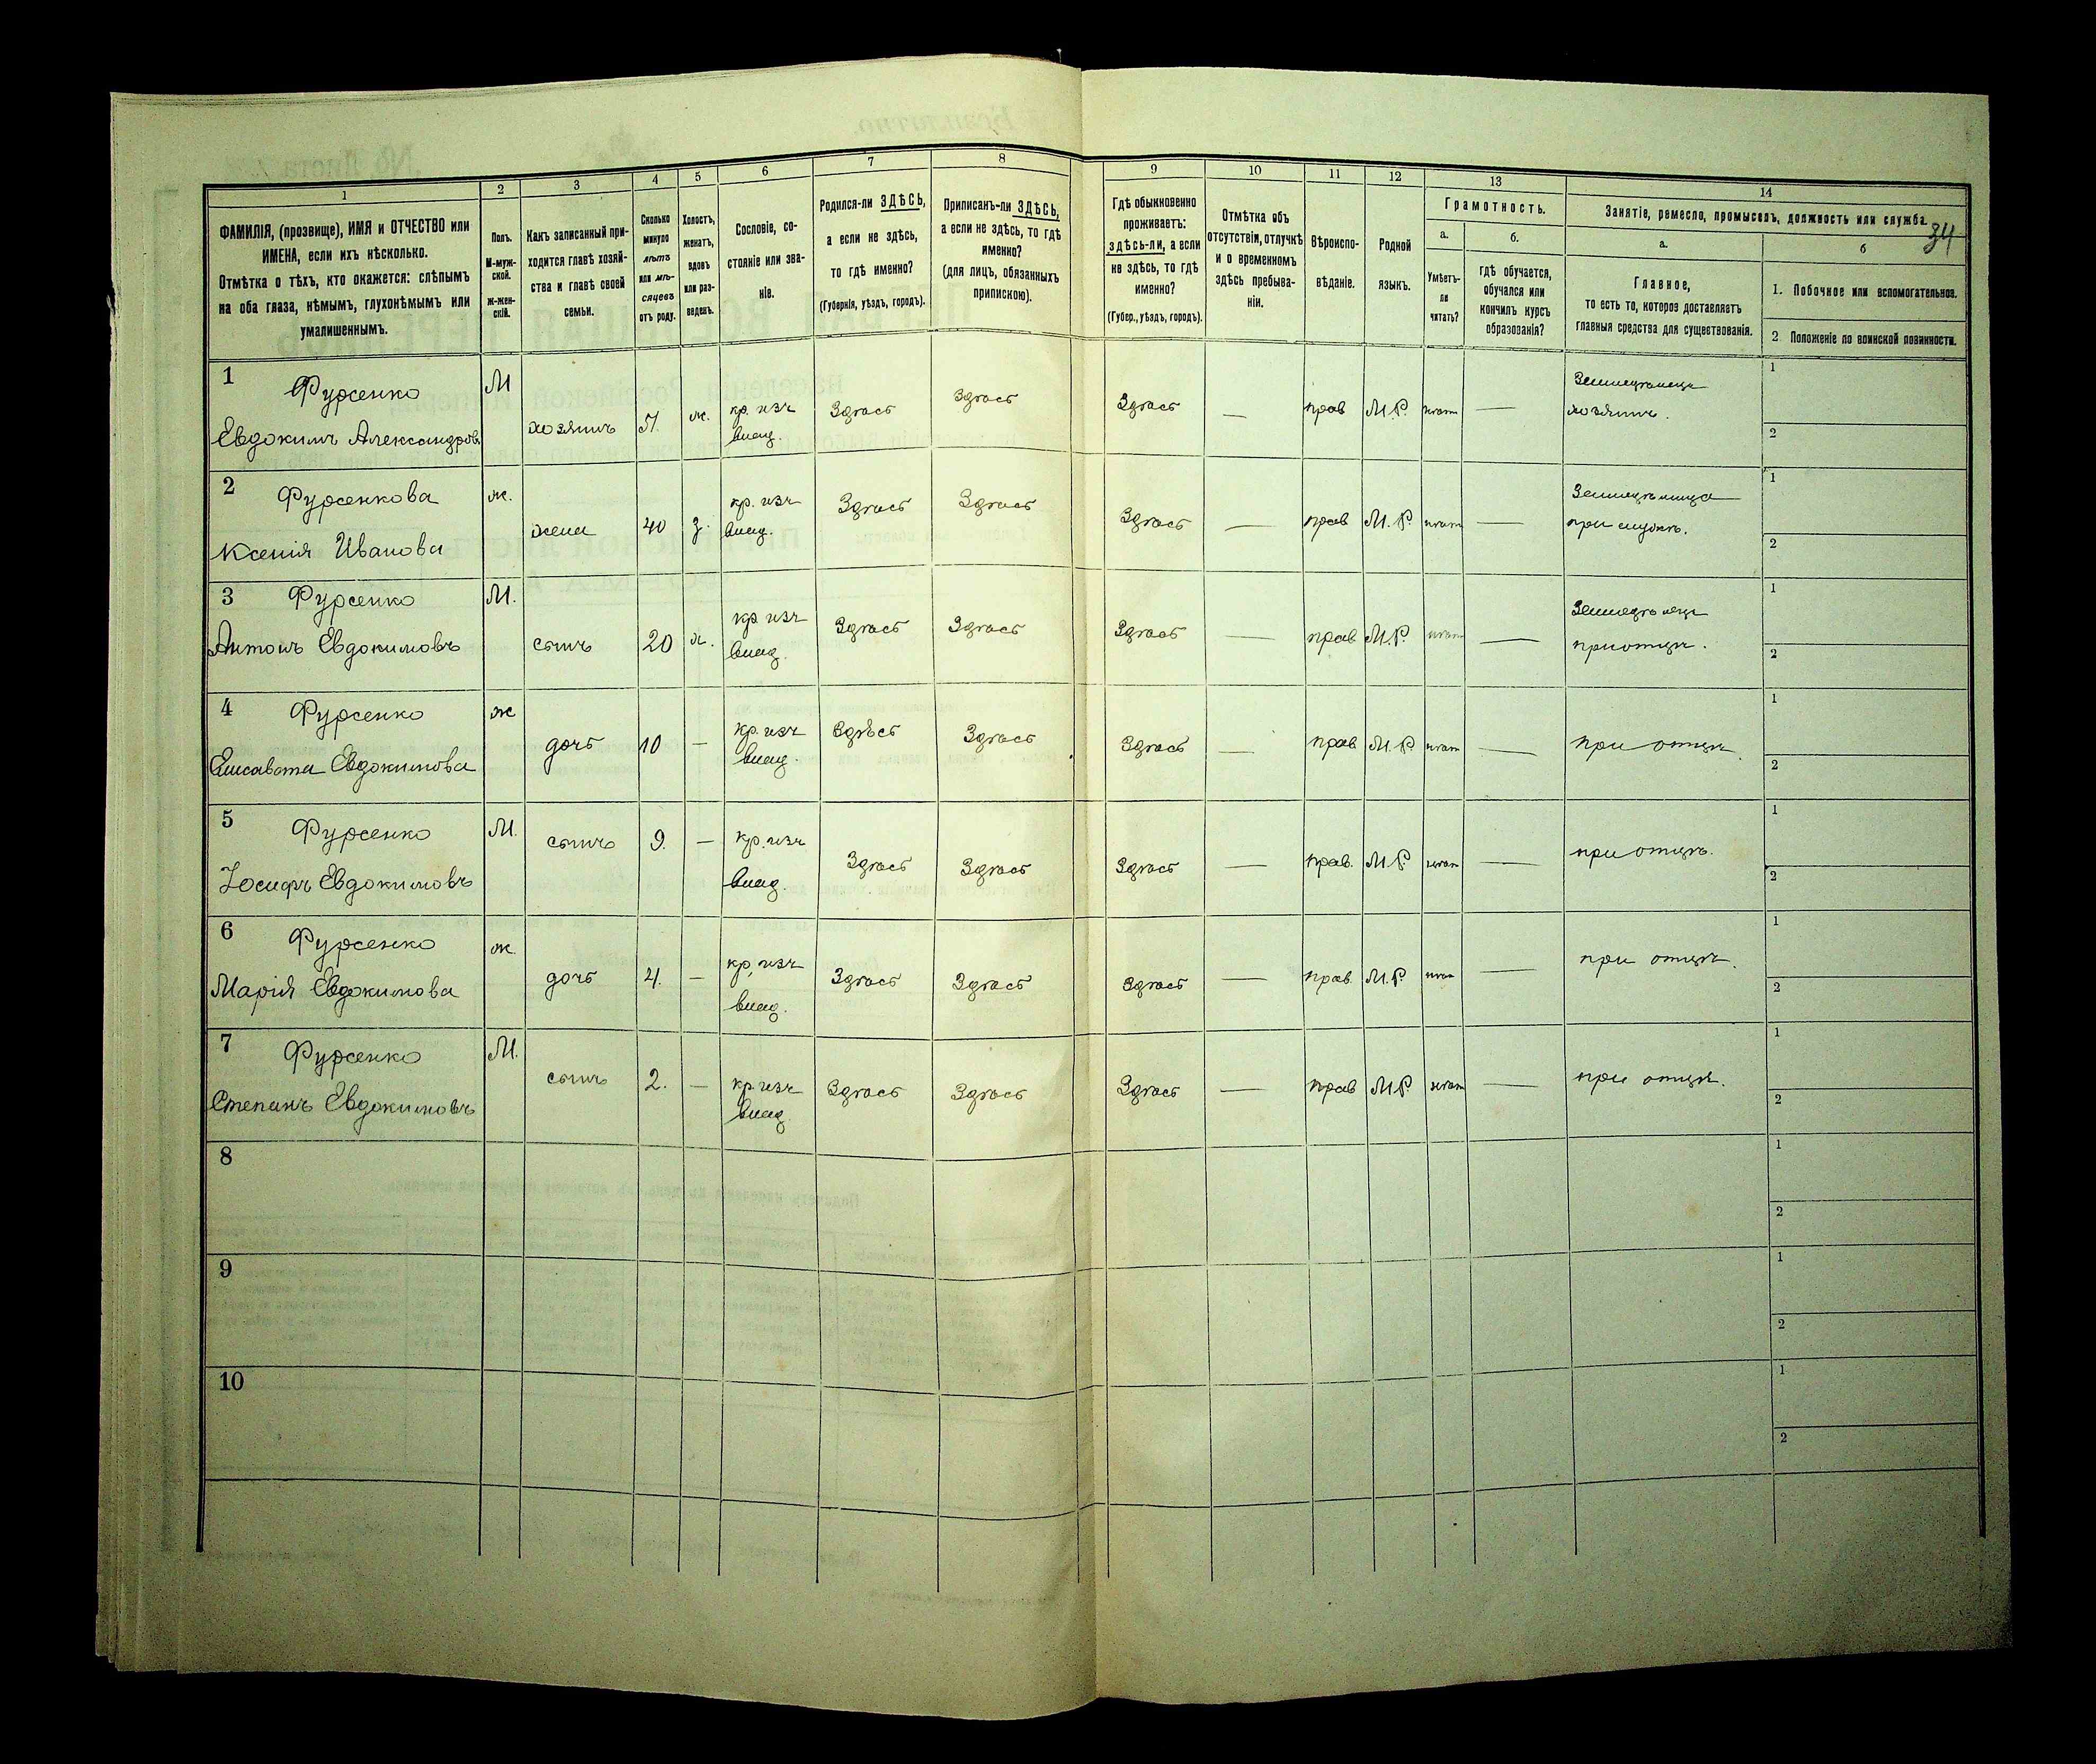 34
1 2 3 4 5 6 7 8 9 10 11 12 13 14
ФАМИЛІЯ, (прозвище), ИМЯ и ОТЧЕСТВО или
ИМЕНА, если ихъ нѣсколько.
Отмѣтка о тѣхъ, кто окажется: слѣпымъ
на оба глаза, нѣмымъ, глухонѣмымъ или
умалишеннымъ.
Полъ.
М-муж-
ской.
Ж-жен-
скій.
Какъ записанный при-
ходится главѣ хозяй-
ства и главѣ своей
семьи.
Сколько
минуло
лѣтъ
или мѣ-
сяцевъ
отъ роду.
Холостъ,
женатъ,
вдовъ
или раз-
веденъ.
Сословіе, со-
стояніе или зва-
ніе.
Родился-ли ЗДѢСЬ,
а если не здѣсь,
то гдѣ именно?
(Губернія, уѣздъ, городъ).
Приписанъ-ли ЗДѢСЬ,
а если не здѣсь, то гдѣ
именно?
(для лицъ, обязанныхъ
припискою).
Гдѣ обыкновенно
проживаетъ:
здѣсь-ли, а если
не здѣсь, то гдѣ
именно?
(Губер., уѣздъ, городъ).
Отмѣтка объ
отсутствіи, отлучкѣ
и о временномъ
здѣсь пребыва-
ніи.
Вѣроиспо-
вѣданіе.
Родной
языкъ.
Грамотность.
а.
Умѣетъ-
ли
читать?
б.
гдѣ обучается,
обучался или
кончилъ курсъ
образованія?
Занятіе, ремесло, промыселъ, должность или служба.
а.
Главное,
то есть то, которое доставляетъ
главныя средства для существованія.
б
1. Побочное или вспомогательное.
2 Положеніе по воинской повинности.
1 Фурсенко М Земледѣлецъ 1
Евдокимъ Александров. хозяинъ 51. ж. кр. изъ влад. Здѣсь Здѣсь Здѣсь — прав М.Р. нѣтъ — хозяинъ. 2
2 Фурсенкова ж. Земледѣлица 1
Ксенія Иванова жена 40 з. кр. изъ влад. Здѣсь Здѣсь Здѣсь — прав М.Р. нѣтъ — при мужѣ. 2
3 Фурсенко М. Земледѣлецъ 1
Антонъ Евдокимовъ сынъ 20 х. кр изъ влад. Здѣсь Здѣсь Здѣсь — прав М.Р. нѣтъ — при отцѣ. 2
4 Фурсенко ж 1
Елисавета Евдокимова дочь 10 — кр. изъ влад. Здѣсь Здѣсь Здѣсь — прав М.Р нѣтъ — при отцѣ. 2
5 Фурсенко М. 1
Іосифъ Евдокимовъ сынъ 9. — кр. изъ влад. Здѣсь Здѣсь Здѣсь — прав. М.Р. нѣтъ — при отцѣ. 2
6 Фурсенко ж. 1
Марія Евдокимова дочь 4. — кр, изъ влад. Здѣсь Здѣсь Здѣсь — прав. М.Р нѣтъ — при отцѣ. 2
7 Фурсенко М. 1
Степанъ Евдокимовъ сынъ 2. — кр изъ влад Здѣсь Здѣсь Здѣсь — прав М.Р. нѣтъ — при отцѣ. 2
8 1
2
9 1
2
10 1
2